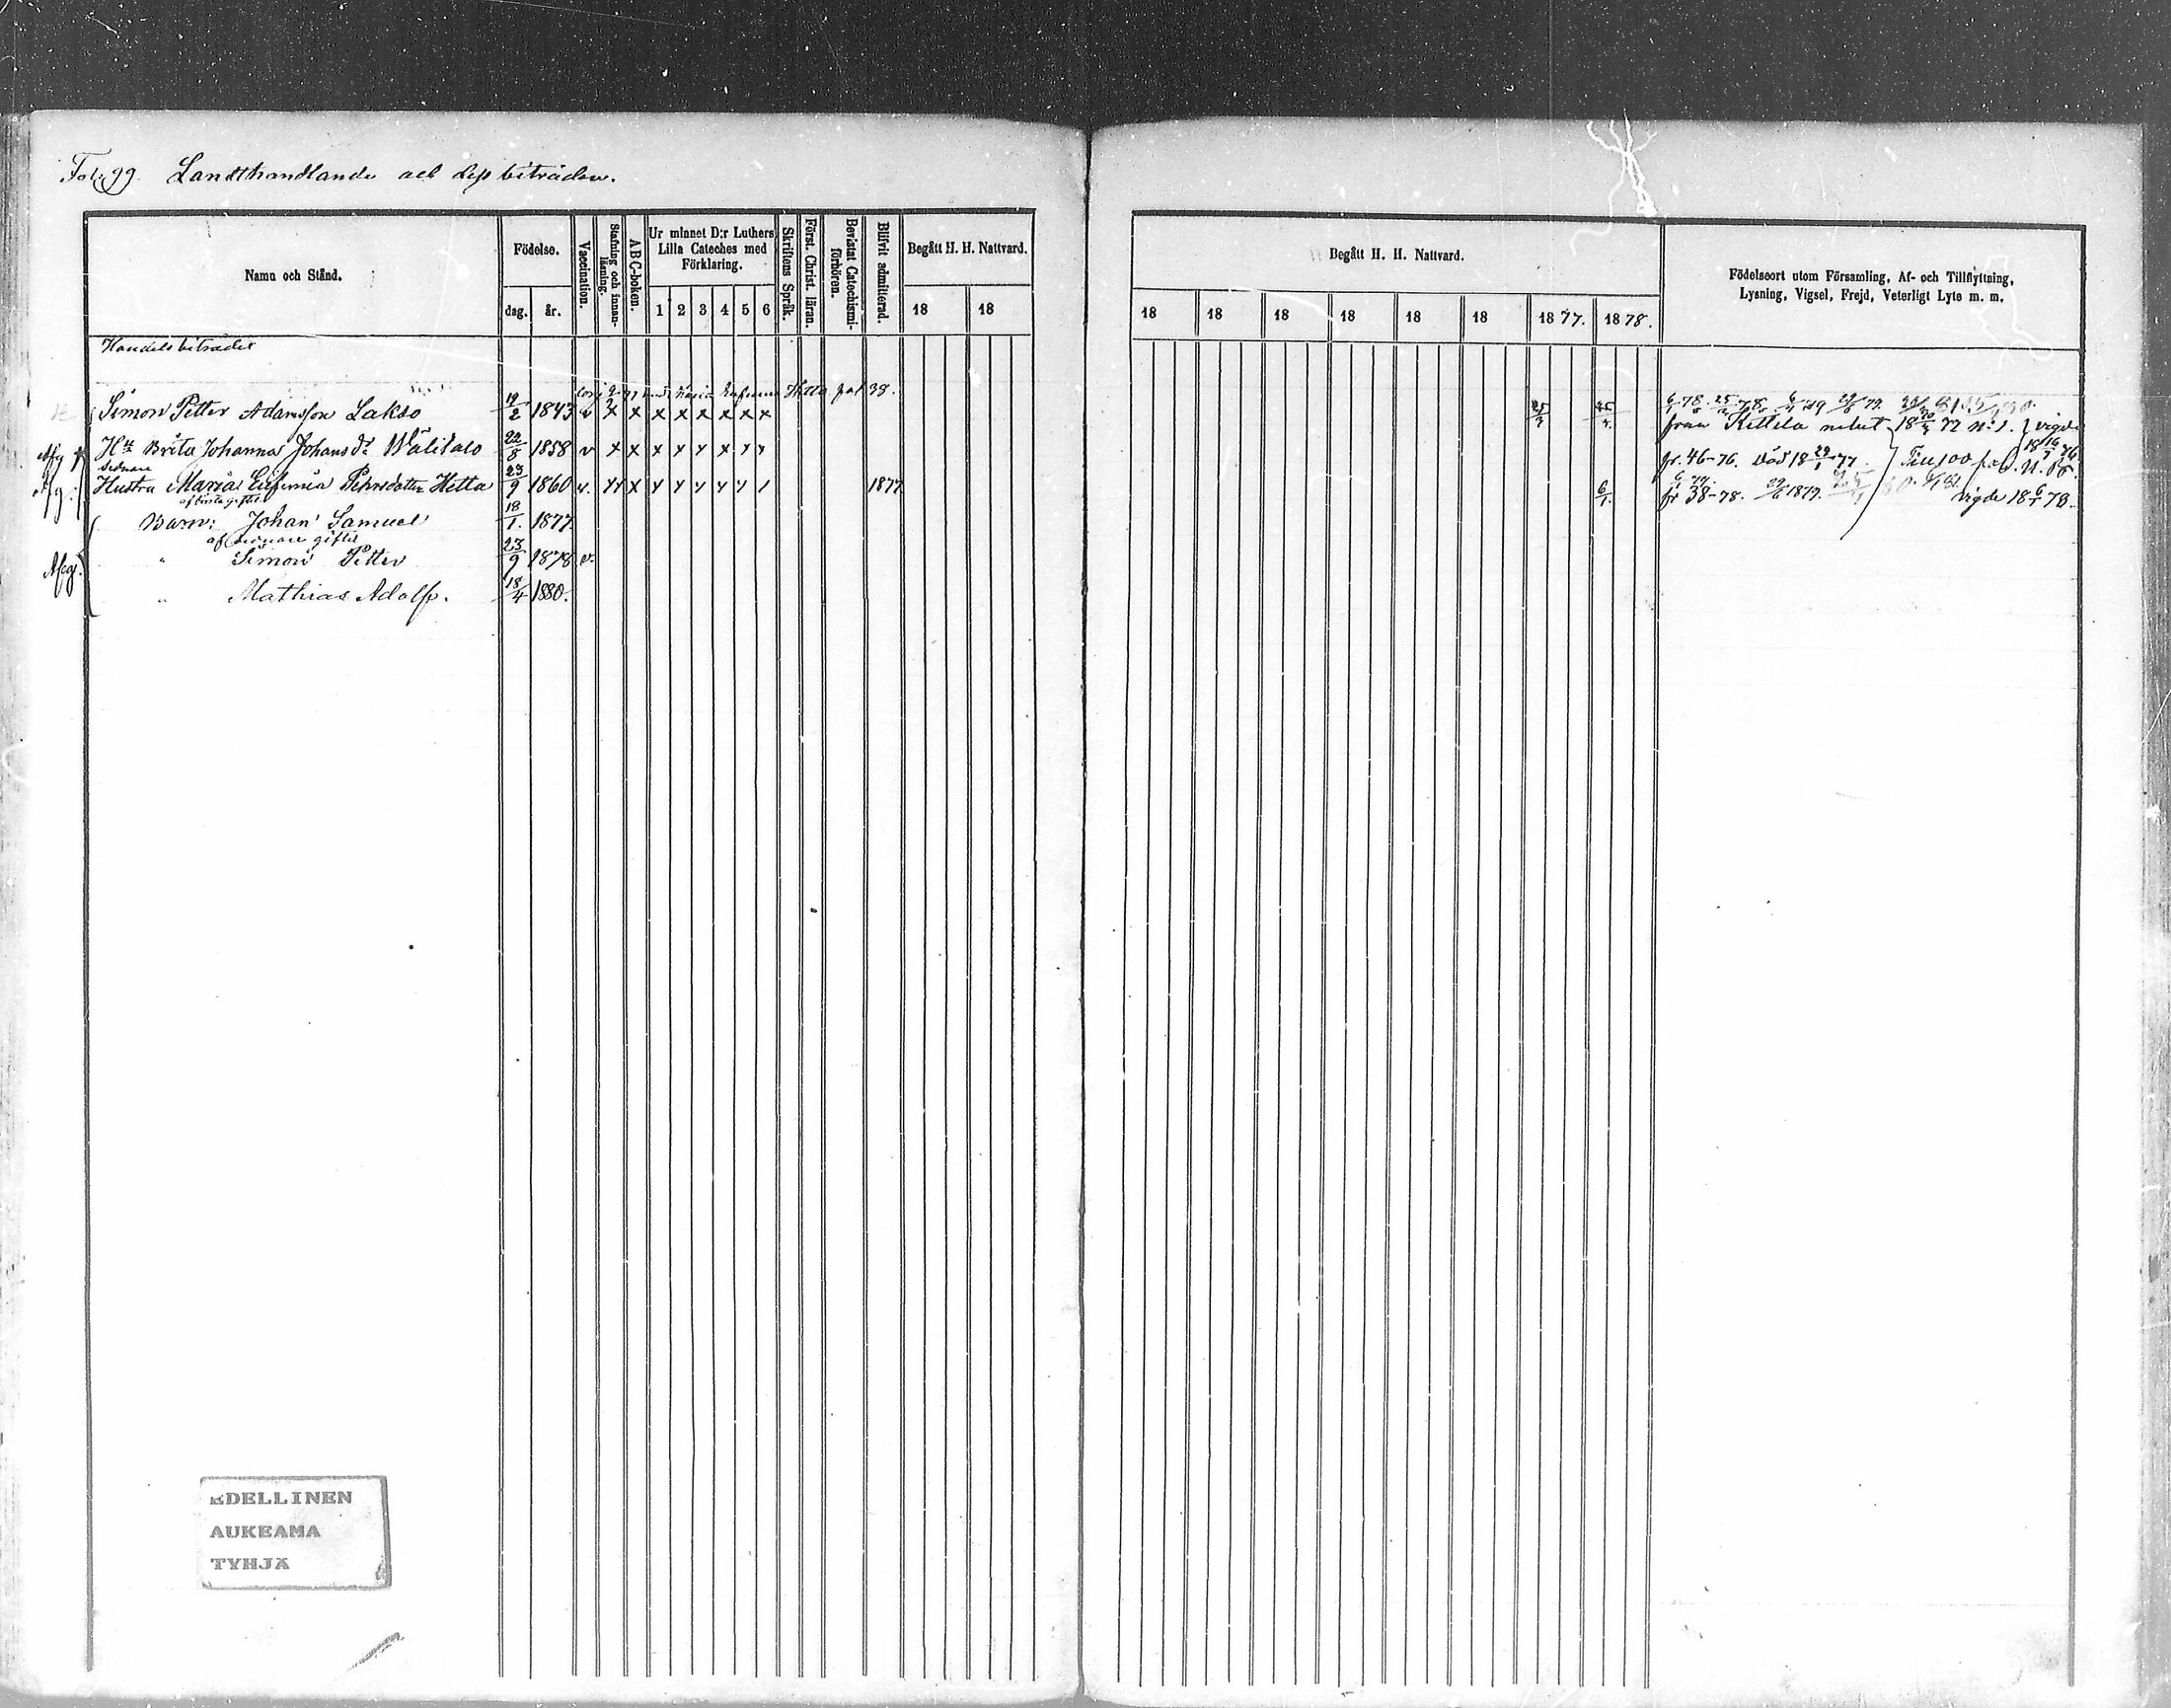 Fol: 99. Landthandlande och dess biträden.
Namn och Stånd.
Födelse.
dag. år.
Vaccination.
Stafning och innanläsning.
ABC-boken.
Ur minnet D:r Luthers
Lilla Cateches med
Förklaring.
1 2 3 4 5 6
Skriftens Språk.
Först. Christ. läran.
Bevistat Catechismiförhören.
Blifvit admitterad.
Begått H. H. Nattvard.
18 18
Begått H. H. Nattvard.
18 18 18 18 18 18 1877. 1878.
Födelseort utom Församling, Af- och Tillflyttning,
Lysning, Vigsel, Frejd, Veterligt Lyte m. m.
Handelsbiträdet
Maria Eufemia Hetta fol 38.
Simon Petter Adamsson Lakso 19/2 1843 v x x x x x x x x 25/3
från Kittilä
Hu Brita Johanna Johansd:r Wälitalo 22/8 1858 v x x x x x x x x fr. 46-76. Död 18 29/1 77. Till 100
sednare
Hustru Maria Eufemia Pehrsdotter Hetta 23/9 1860 v. 1877 6/1. fr 38-78. 1879. vigde 18 6/1 78.
af första giftet
Barn: Johan Samuel 18/1. 1877.
af sednare giftet
" Simon Petter 23/9 1878 v.
" Mathias Adolf. 18/4 1880.
EDELLINEN
AUKEAMA
TYHJÄ